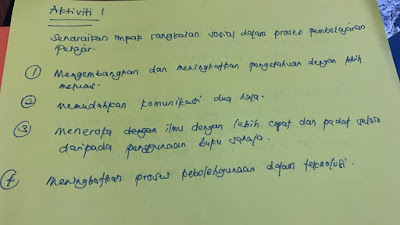 Aktiviti 1
Senaraikan impak rangkaian sosial dalam proses pembelajaran
pelajar.
1 Mengembangkan dan meningkatkan pengetahuan dengan lebih
meluas.
2 Memudahkan komunikasi dua hala.
3 Meneroka dengan ilmu dengan lebih cepat dan padat selain
daripada penggunaan buku sahaja.
4 Meningkatkan proses kebolehgunaan dalam teknologi.